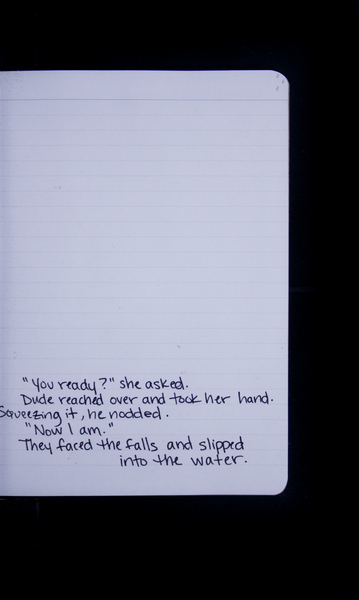 "You ready?" she asked.
Dude reached over and took her hand.
Squeezing it, he nodded.
"Now I am."
They faced the falls and slipped
into the water.